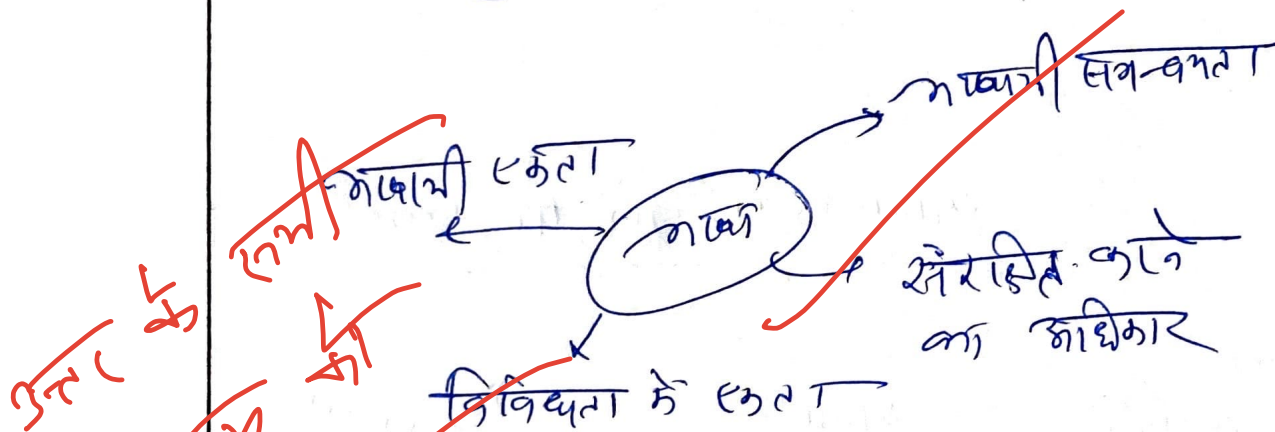 भाषायी समन्वयता
भाषायी एकता
भाषा
संरक्षित करने
का अधिकार
विविधता में एकता
उत्तर के सभी
को